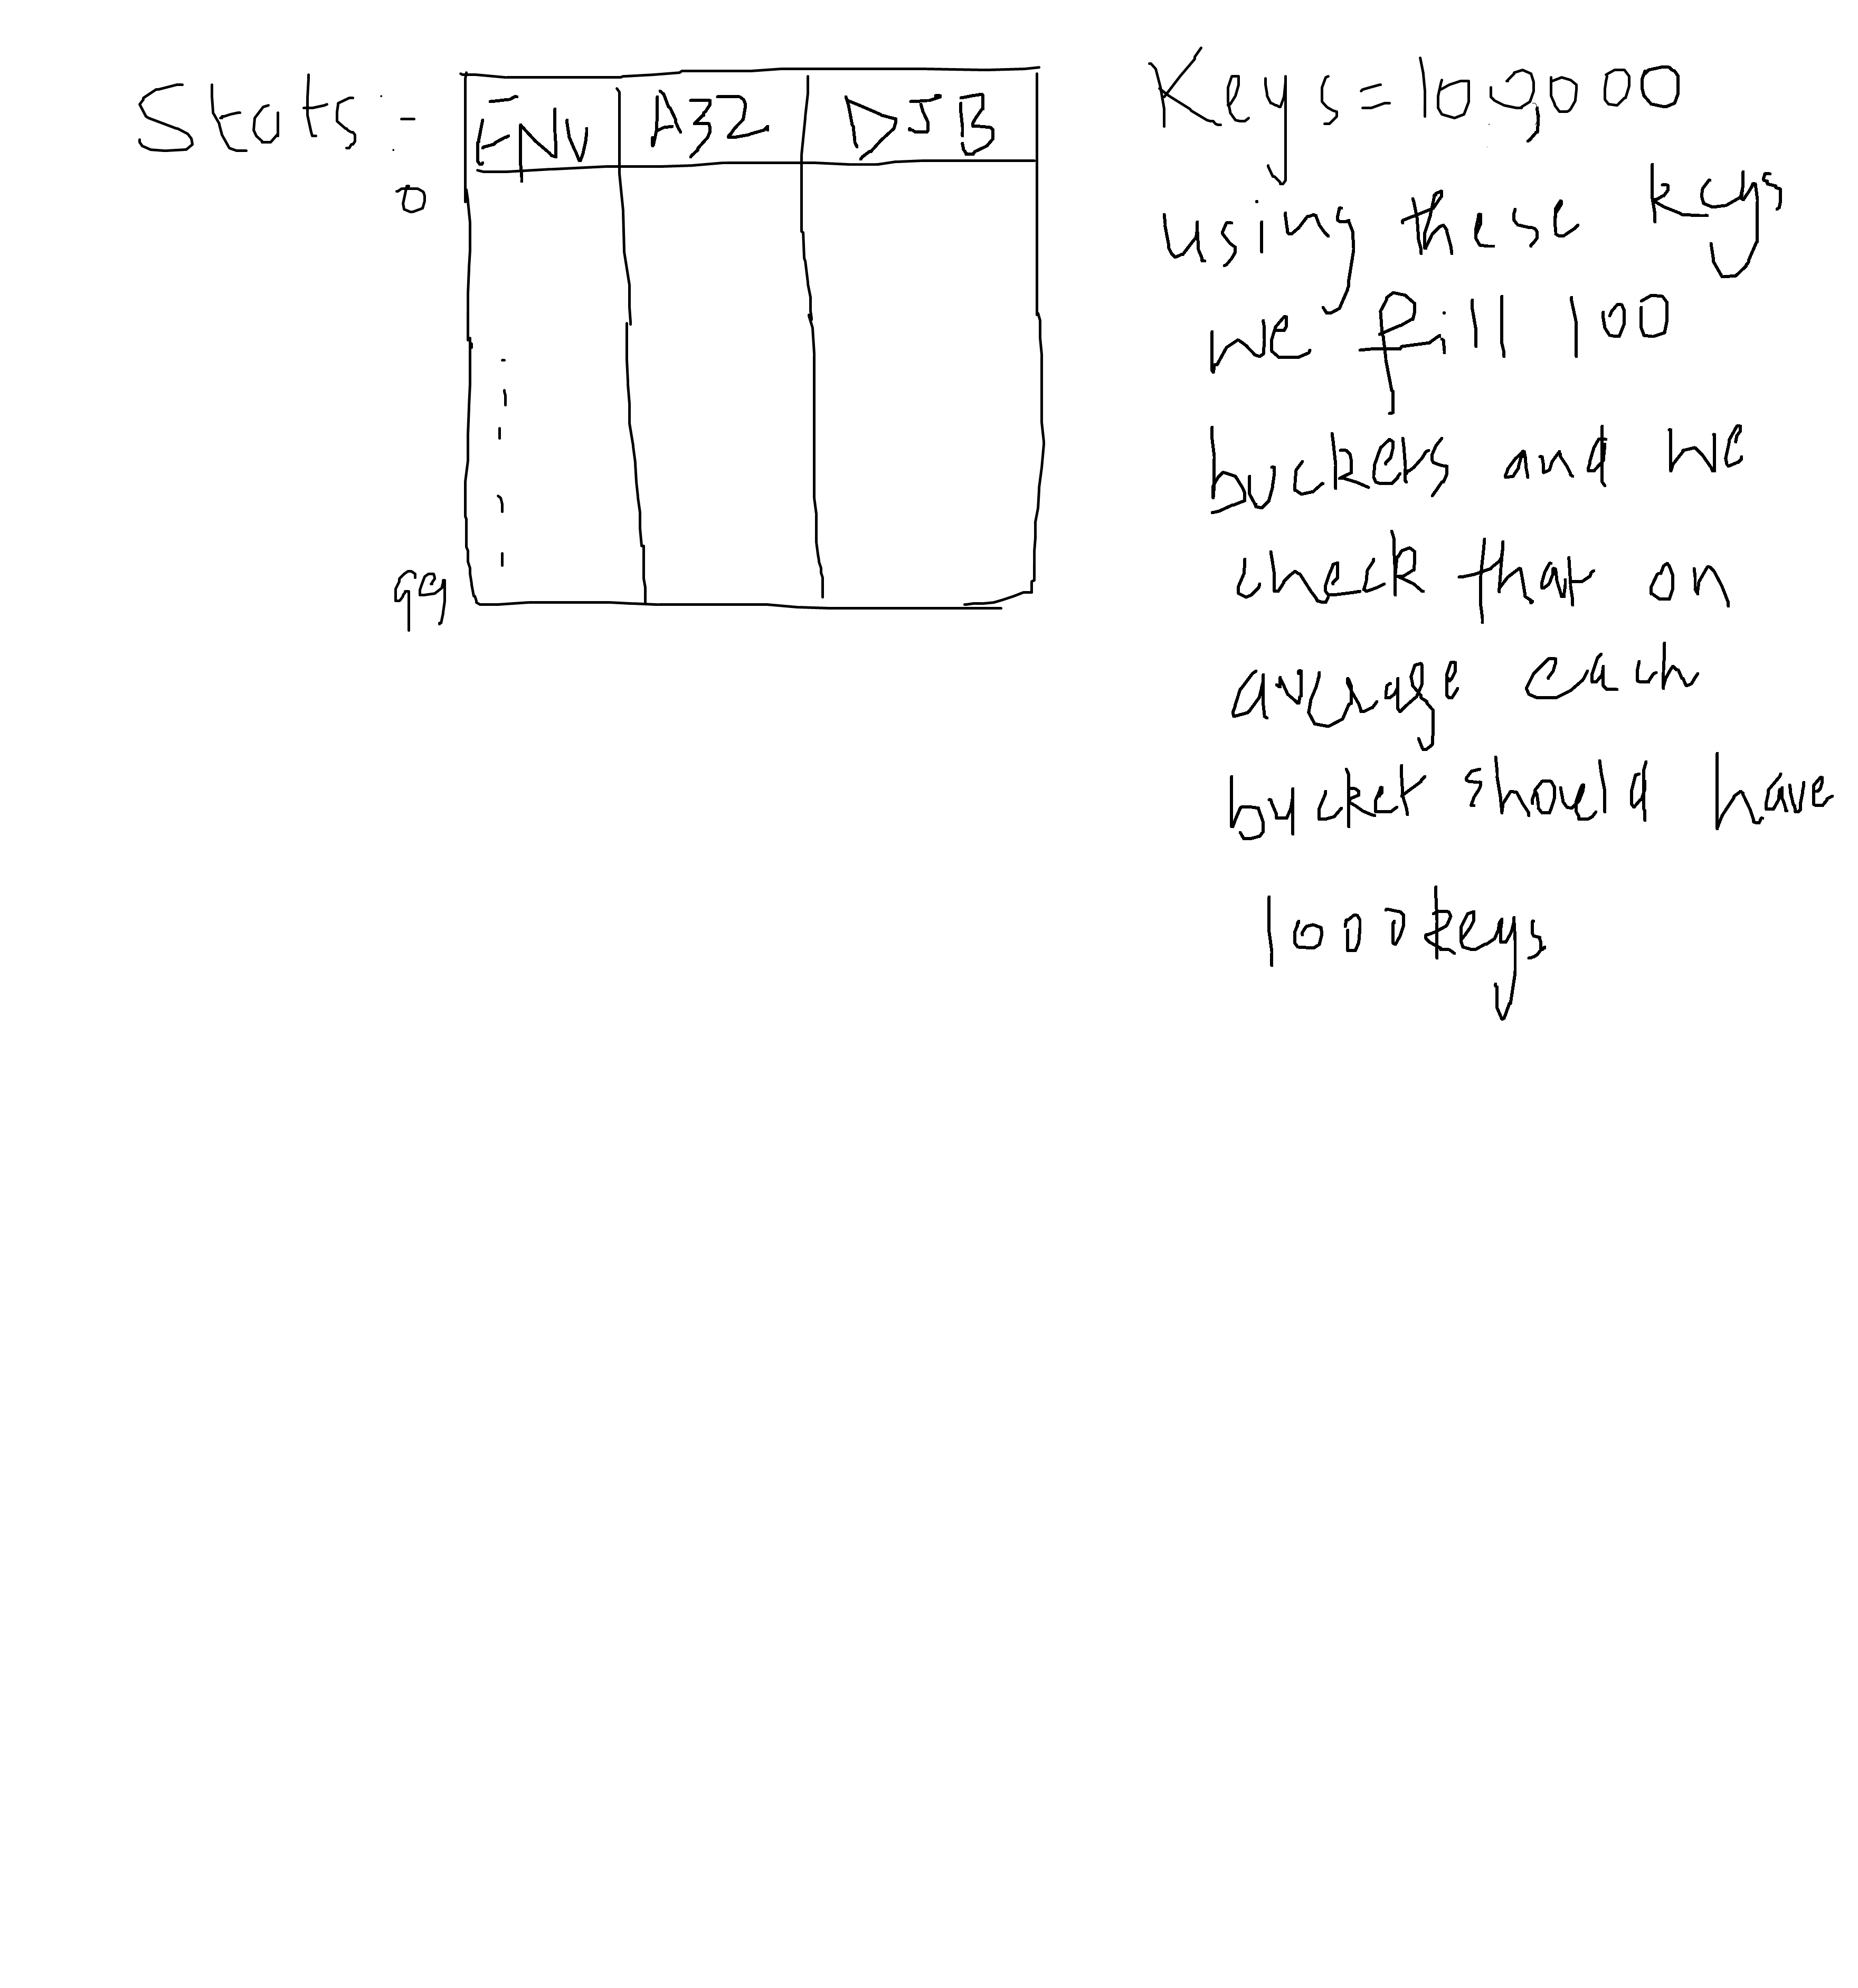 Stats :-
FNV A32 DJB
0
99
Keys = 100,000
using these keys
we fill 100
buckets and we
check that on
average each
bucket should have
1000 keys